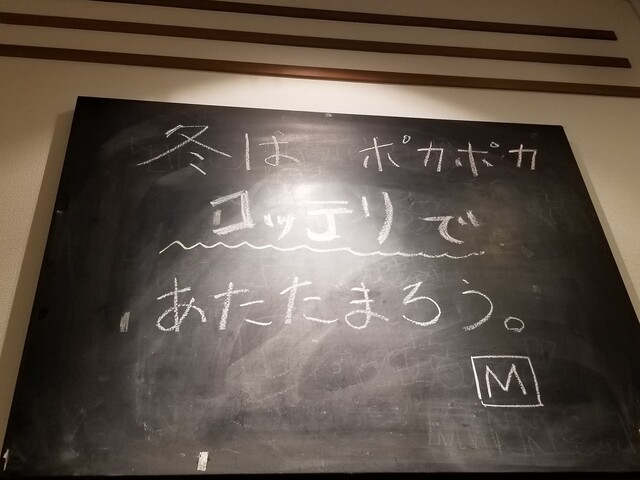 冬は ポカポカ
コッテリで
あたたまろう。
M